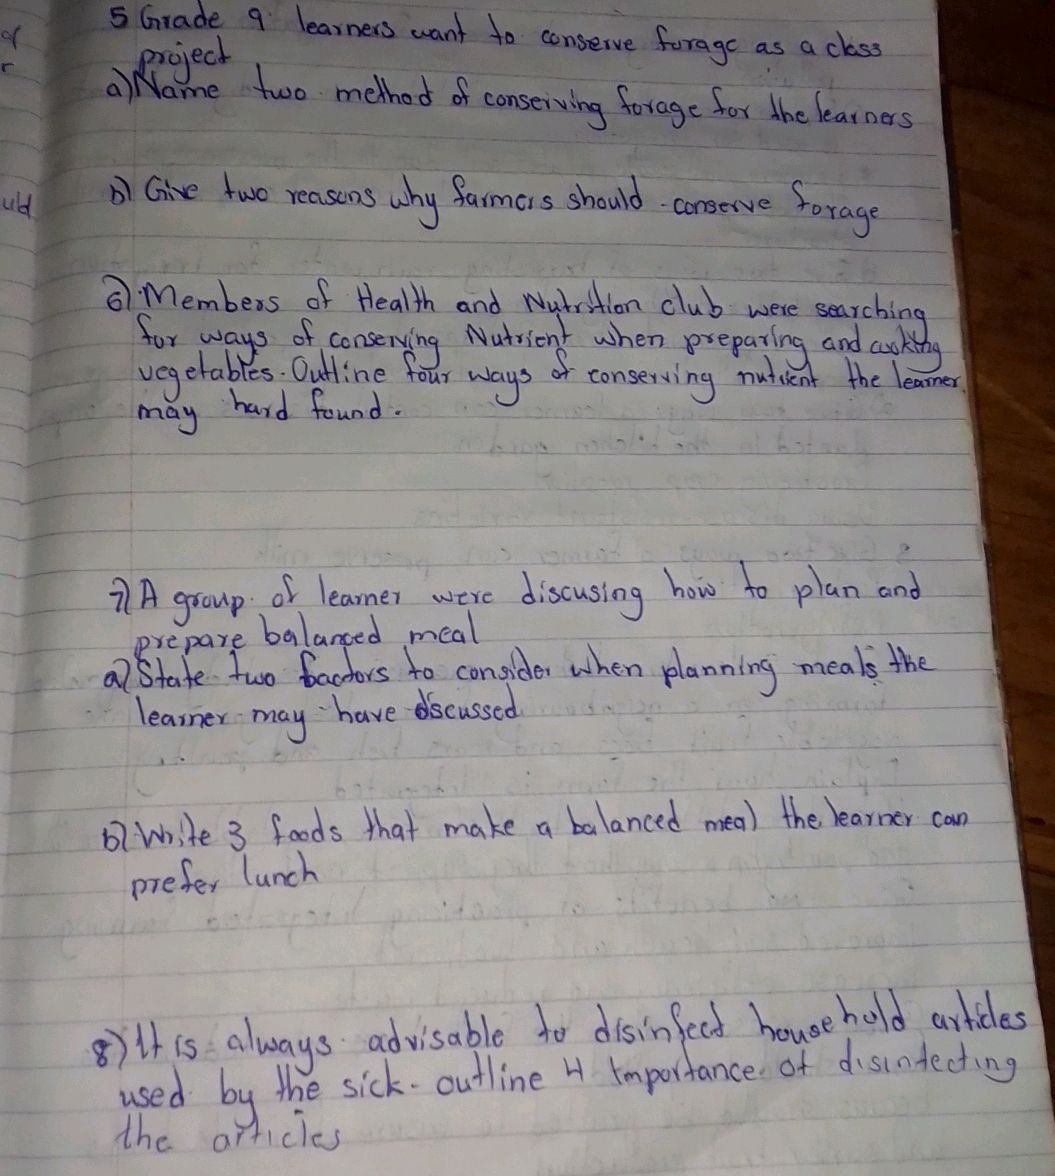 5 Grade 9 learners want to conserve forage as a class
project
a) Name two method of conserving forage for the learners
b) Give two reasons why farmers should conserve forage
uld
6) Members of Health and Nutrition club were searching
for ways of conserving Nutrient when preparing and cooking
vegetables. Outline four ways of conserving nutrient the learner
may hard found.
7) A group of learner were discusing how to plan and
prepare balanced meal
a) State two factors to consider when planning meals the
learner may have discussed
b) Write 3 foods that make a balanced meal the learner can
prefer lunch
8) It is always advisable to disinfect household articles
used by the sick. outline 4 importance of disinfecting
the articles